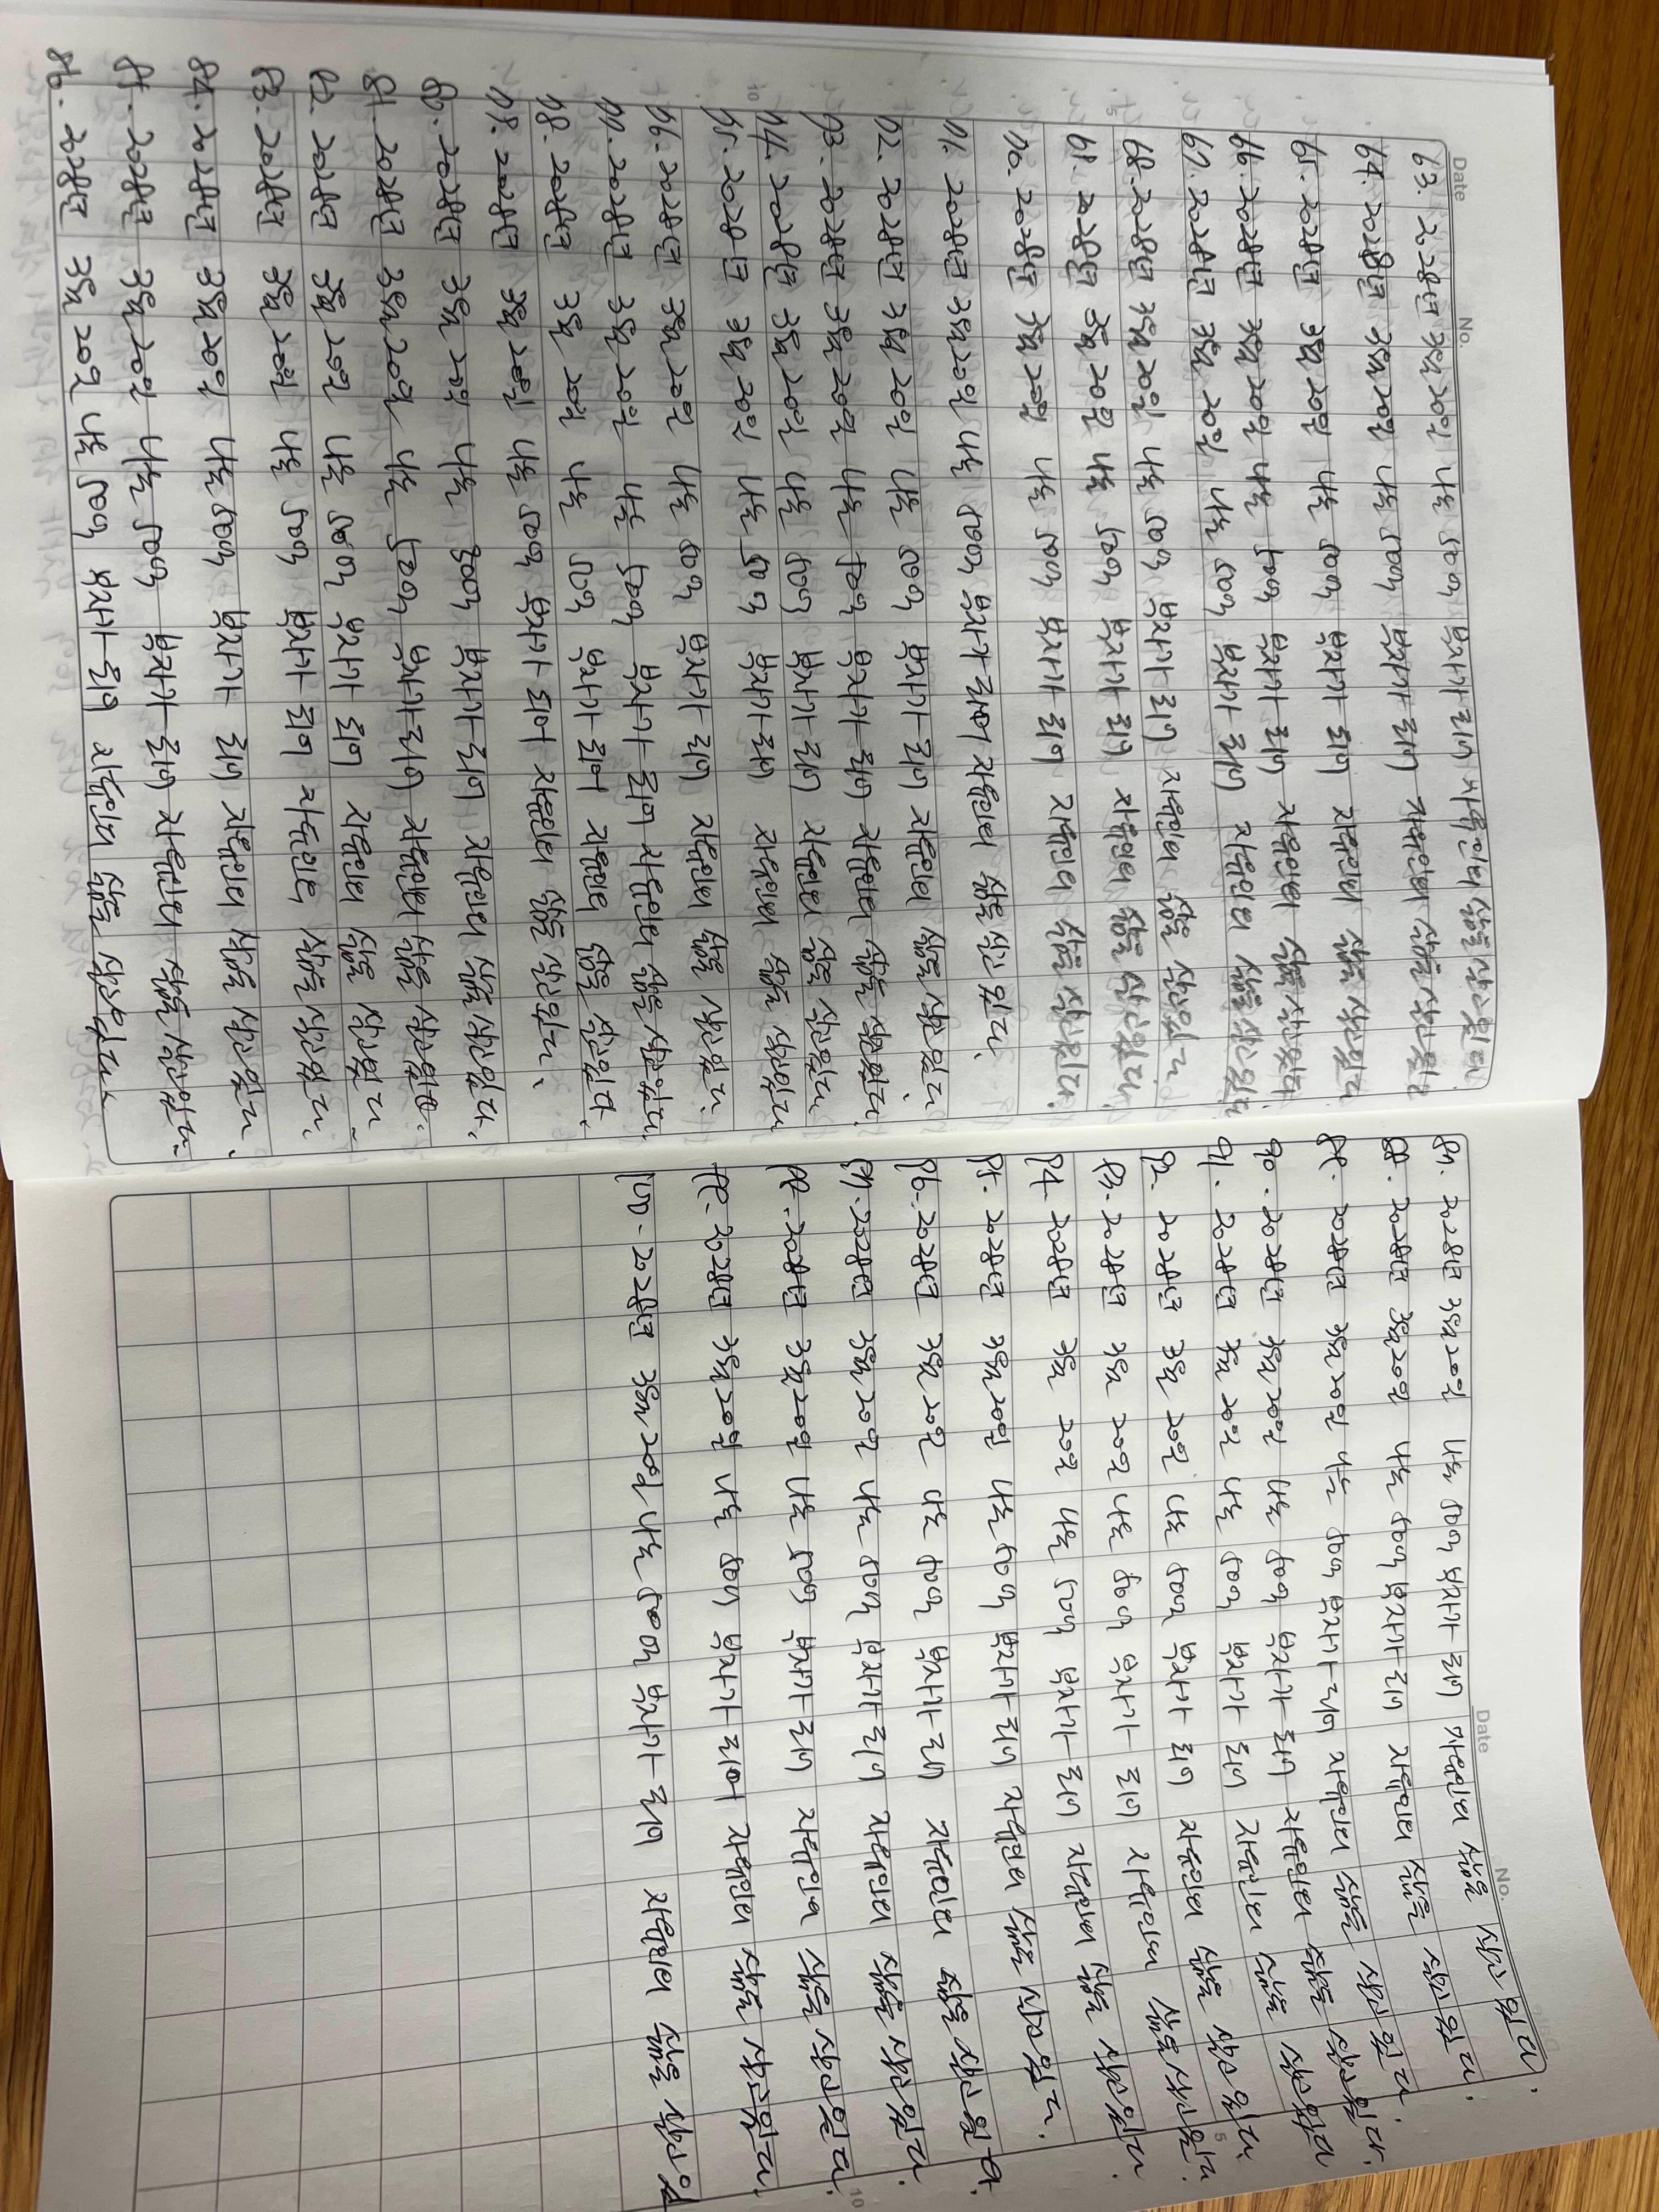 Date
No.
63. 2028년 3월 20일 나는 500억 부자가 되어 자유인의 삶을 살고 있다
64. 2028년 3월 20일 나는 500억 부자가 되어 자유인의 삶을 살고 있다
65. 2028년 3월 20일 나는 500억 부자가 되어 자유인의 삶을 살고 있다
66. 2028년 3월 20일 나는 500억 부자가 되어 자유인의 삶을 살고 있다
67. 2028년 3월 20일 나는 500억 부자가 되어 자유인의 삶을 살고 있다
68. 2028년 3월 20일 나는 500억 부자가 되어 자유인의 삶을 살고 있다.
69. 2028년 3월 20일 나는 500억 부자가 되어 자유인의 삶을 살고 있다.
70. 2028년 3월 20일 나는 500억 부자가 되어 자유인의 삶을 살고 있다.
71. 2028년 3월 20일 나는 500억 부자가 되어 자유인의 삶을 살고 있다.
72. 2028년 3월 20일 나는 500억 부자가 되어 자유인의 삶을 살고 있다.
73. 2028년 3월 20일 나는 500억 부자가 되어 자유인의 삶을 살고 있다.
74. 2028년 3월 20일 나는 500억 부자가 되어 자유인의 삶을 살고 있다.
75. 2028년 3월 20일 나는 500억 부자가 되어 자유인의 삶을 살고 있다
76. 2028년 3월 20일 나는 500억 부자가 되어 자유인의 삶을 살고 있다.
77. 2028년 3월 20일 나는 500억 부자가 되어 자유인의 삶을 살고 있다.
78. 2028년 3월 20일 나는 500억 부자가 되어 자유인의 삶을 살고 있다.
79. 2028년 3월 20일 나는 500억 부자가 되어 자유인의 삶을 살고 있다.
80. 2028년 3월 20일 나는 500억 부자가 되어 자유인의 삶을 살고 있다.
81. 2028년 3월 20일 나는 500억 부자가 되어 자유인의 삶을 살고 있다.
82. 2028년 3월 20일 나는 500억 부자가 되어 자유인의 삶을 살고 있다.
83. 2028년 3월 20일 나는 500억 부자가 되어 자유인의 삶을 살고 있다.
84. 2028년 3월 20일 나는 500억 부자가 되어 자유인의 삶을 살고 있다.
85. 2028년 3월 20일 나는 500억 부자가 되어 자유인의 삶을 살고 있다.
86. 2028년 3월 20일 나는 500억 부자가 되어 자유인의 삶을 살고 있다.
Date
No.
87. 2028년 3월 20일 나는 500억 부자가 되어 자유인의 삶을 살고 있다.
88. 2028년 3월 20일 나는 500억 부자가 되어 자유인의 삶을 살고 있다.
89. 2028년 3월 20일 나는 500억 부자가 되어 자유인의 삶을 살고 있다.
90. 2028년 3월 20일 나는 500억 부자가 되어 자유인의 삶을 살고 있다.
91. 2028년 3월 20일 나는 500억 부자가 되어 자유인의 삶을 살고 있다
92. 2028년 3월 20일 나는 500억 부자가 되어 자유인의 삶을 살고 있다.
93. 2028년 3월 20일 나는 500억 부자가 되어 자유인의 삶을 살고 있다.
94. 2028년 3월 20일 나는 500억 부자가 되어 자유인의 삶을 살고 있다.
95. 2028년 3월 20일 나는 500억 부자가 되어 자유인의 삶을 살고 있다.
96. 2028년 3월 20일 나는 500억 부자가 되어 자유인의 삶을 살고 있다.
97. 2028년 3월 20일 나는 500억 부자가 되어 자유인의 삶을 살고 있다.
98. 2028년 3월 20일 나는 500억 부자가 되어 자유인의 삶을 살고 있다.
99. 2028년 3월 20일 나는 500억 부자가 되어 자유인의 삶을 살고 있다.
100. 2028년 3월 20일 나는 500억 부자가 되어 자유인의 삶을 살고 있
5
10
5
10